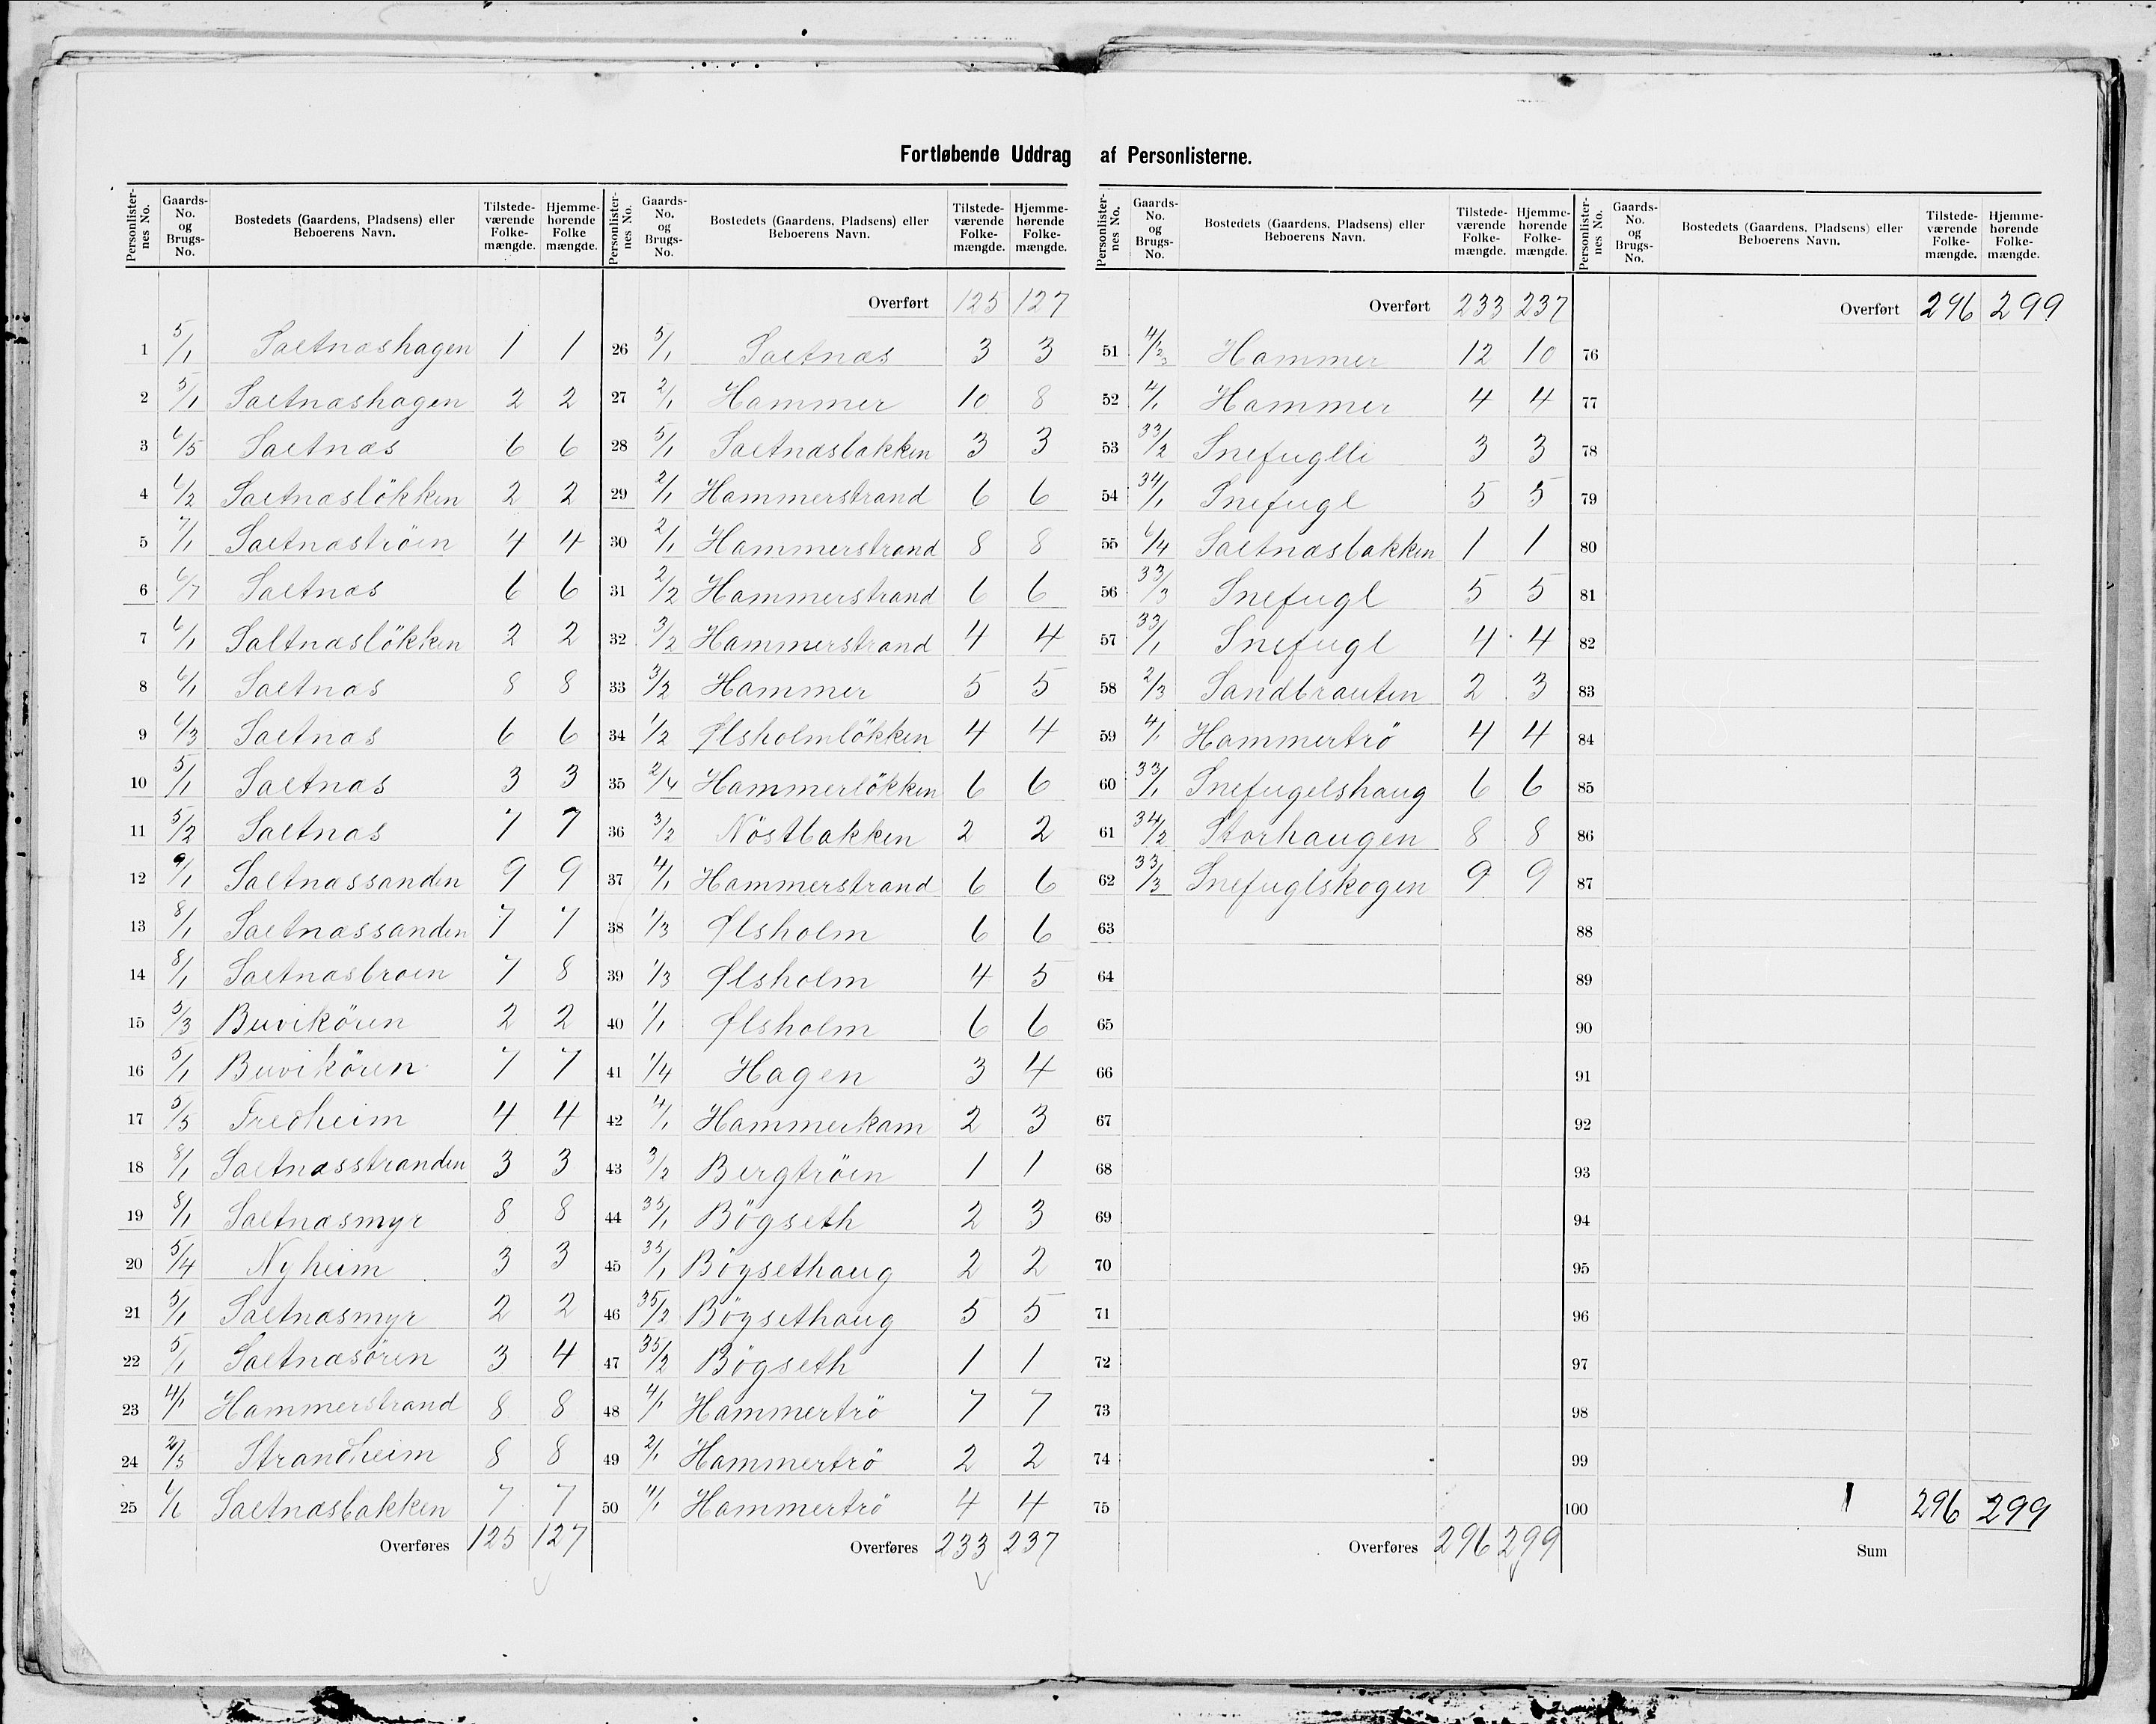 Fortløbende Uddrag af Personlisterne.
Personlister-nes No. Gaards-No. og Brugs-No. Bostedets (Gaardens, Pladsens) eller Beboerens Navn. Tilstede-værende Folke-mængde. Hjemme-hørende Folke mængde.
1 5/1 Saltnæshagen 1 1
2 5/1 Saltnæshagen 2 2
3 6/5 Saltnæs 6 6
4 6/2 Saltnæsløkken 2 2
5 7/1 Saltnæstrøen 4 4
6 6/7 Saltnæs 6 6
7 6/1 Saltnæsløkken 2 2
8 6/1 Saltnæs 8 8
9 6/3 Saltnæs 6 6
10 5/1 Saltnæs 3 3
11 5/2 Saltnæs 7 7
12 9/1 Saltnæssanden 9 9
13 8/1 Saltnæssanden 7 7
14 8/1 Saltnæsbroen 7 8
15 5/3 Buvikören 2 2
16 5/1 Buvikören 7 7
17 5/5 Fredheim 4 4
18 8/1 Saltnæsstranden 3 3
19 8/1 Saltnæsmyr 8 8
20 5/4 Nyheim 3 3
21 5/1 Saltnæsmyr 2 2
22 5/1 Saltnæsören 3 4
23 4/1 Hammerstrand 8 8
24 2/5 Strandheim 8 8
25 6/6 Saltnæsbakken 7 7
Overføres 125 127
Personlister-nes No. Gaards-No. og Brugs-No. Bostedets (Gaardens, Pladsens) eller Beboerens Navn. Tilstede-værende Folke-mængde. Hjemme-hørende Folke-mængde.
Overført 125 127
26 5/1 Saltnæs 3 3
27 2/1 Hammer 10 8
28 5/1 Saltnæsbakken 3 3
29 2/1 Hammerstrand 6 6
30 2/1 Hammerstrand 8 8
31 2/2 Hammerstrand 6 6
32 3/2 Hammerstrand 4 4
33 3/2 Hammer 5 5
34 1/2 Ølsholmlökken 4 4
35 2/4 Hammerlökken 6 6
36 3/2 Nöstbakken 2 2
37 4/1 Hammerstrand 6 6
38 1/3 Ølsholm 6 6
39 1/3 Ølsholm 4 5
40 1/1 Ølsholm 6 6
41 1/4 Hagen 3 4
42 4/1 Hammerkam 2 3
43 3/2 Bergtröen 1 1
44 35/1 Bögseth 2 3
45 35/1 Bögsethaug 2 2
46 35/2 Bögsethaug 5 5
47 35/2 Bögseth 1 1
48 4/1 Hammertrö 7 7
49 2/1 Hammertrö 2 2
50 4/1 Hammertrö 4 4
Overføres 233 237
Personlister-nes No. Gaards-No. og Brugs-No. Bostedets (Gaardens, Pladsens) eller Beboerens Navn. Tilstede-værende Folke-mængde. Hjemme-hørende Folke-mængde.
Overført 233 237
51 4/2 3 Hammer 12 10
52 4/1 Hammer 4 4
53 33/2 Snefuglli 3 3
54 34/1 Snefugl 5 5
55 6/4 Saltnæsbakken 1 1
56 33/3 Snefugl 5 5
57 33/1 Snefugl 4 4
58 2/3 Sandbrauten 2 3
59 4/1 Hammertrö 4 4
60 33/1 Snefugelshaug 6 6
61 34/2 Storhaugen 8 8
62 33/3 Snefuglskogen 9 9
63
64
65
66
67
68
69
70
71
72
73
74
75
Overføres 296 299
Personlister-nes No. Gaards-No. og Brugs-No. Bostedets (Gaardens, Pladsens) eller Beboerens Navn. Tilstede-værende Folke-mængde. Hjemme-hørende Folke-mængde.
Overført 296 299
76
77
78
79
80
81
82
83
84
85
86
87
88
89
90
91
92
93
94
95
96
97
98
99
100 296 299
Sum